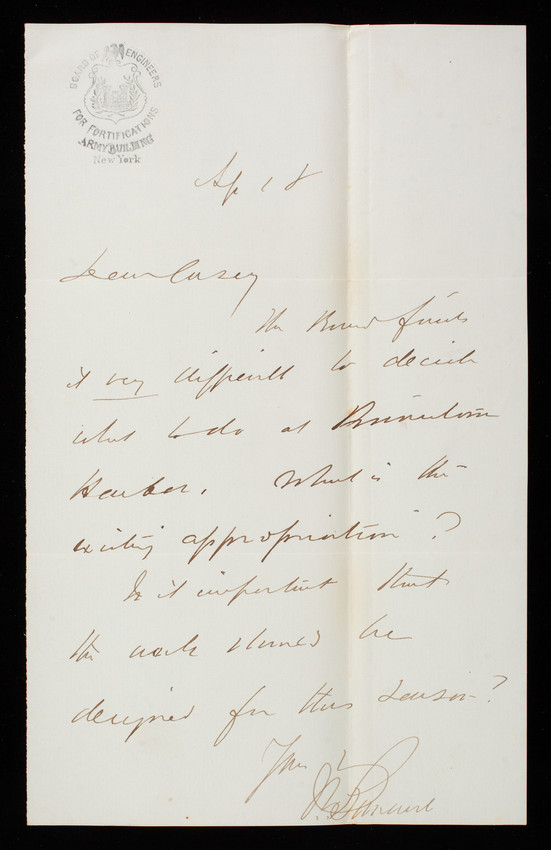 BOARD OF ENGINEERS
FOR FORTIFICATIONS
ARMY BUILDING
New York
Ap 18
Dear Casey
The Board finds
it very difficult to decide
what to do at
Harbor. What is the
existing appropriation?
Is it important that
the work should be
designed for this season?
Yours